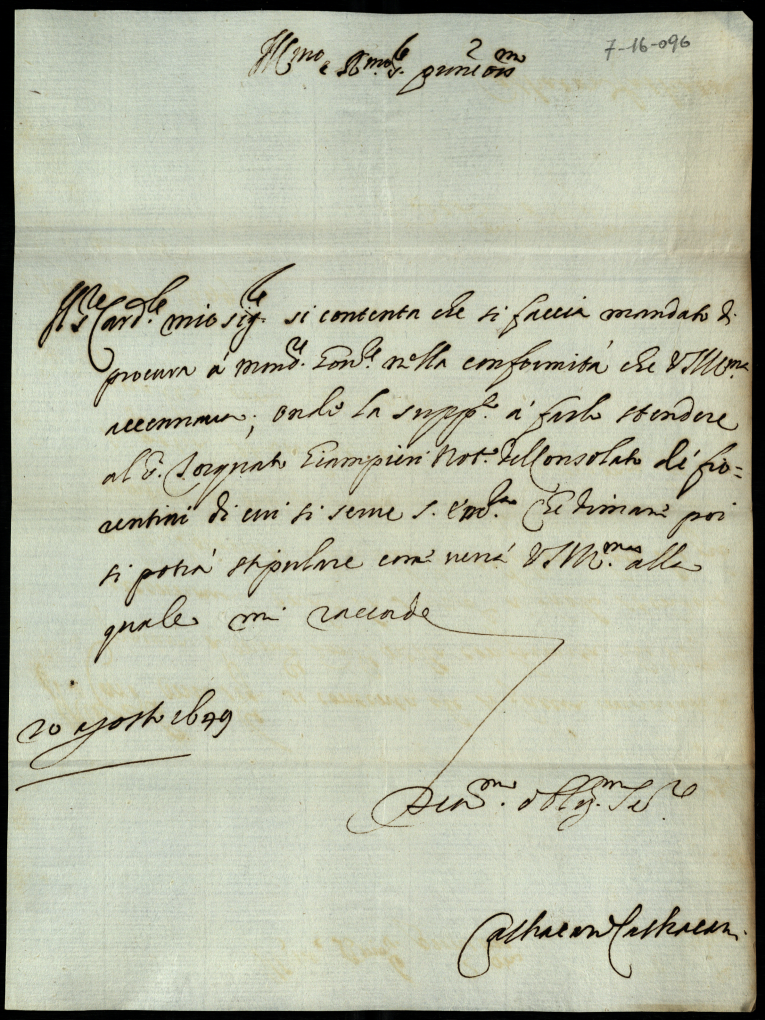 7-16-096
Ill.mo e R.mo S.r
S.r Card.le mio sig.re si contenta che si faccia mandato di
procura á mons.r nella conformitá che VS Ill.ma
accennava, onde la supp.co á farlo stendere
al S. Torquato Giampieri Not. dell Consolato de fio=
rentini di cui si serve S. Em.za Che dimani poi
si potrá stipulare com verrá VS Ill.ma alla
quale mi raccordo
20 agosto 1649
Dev.mo Oblig.mo Se.re